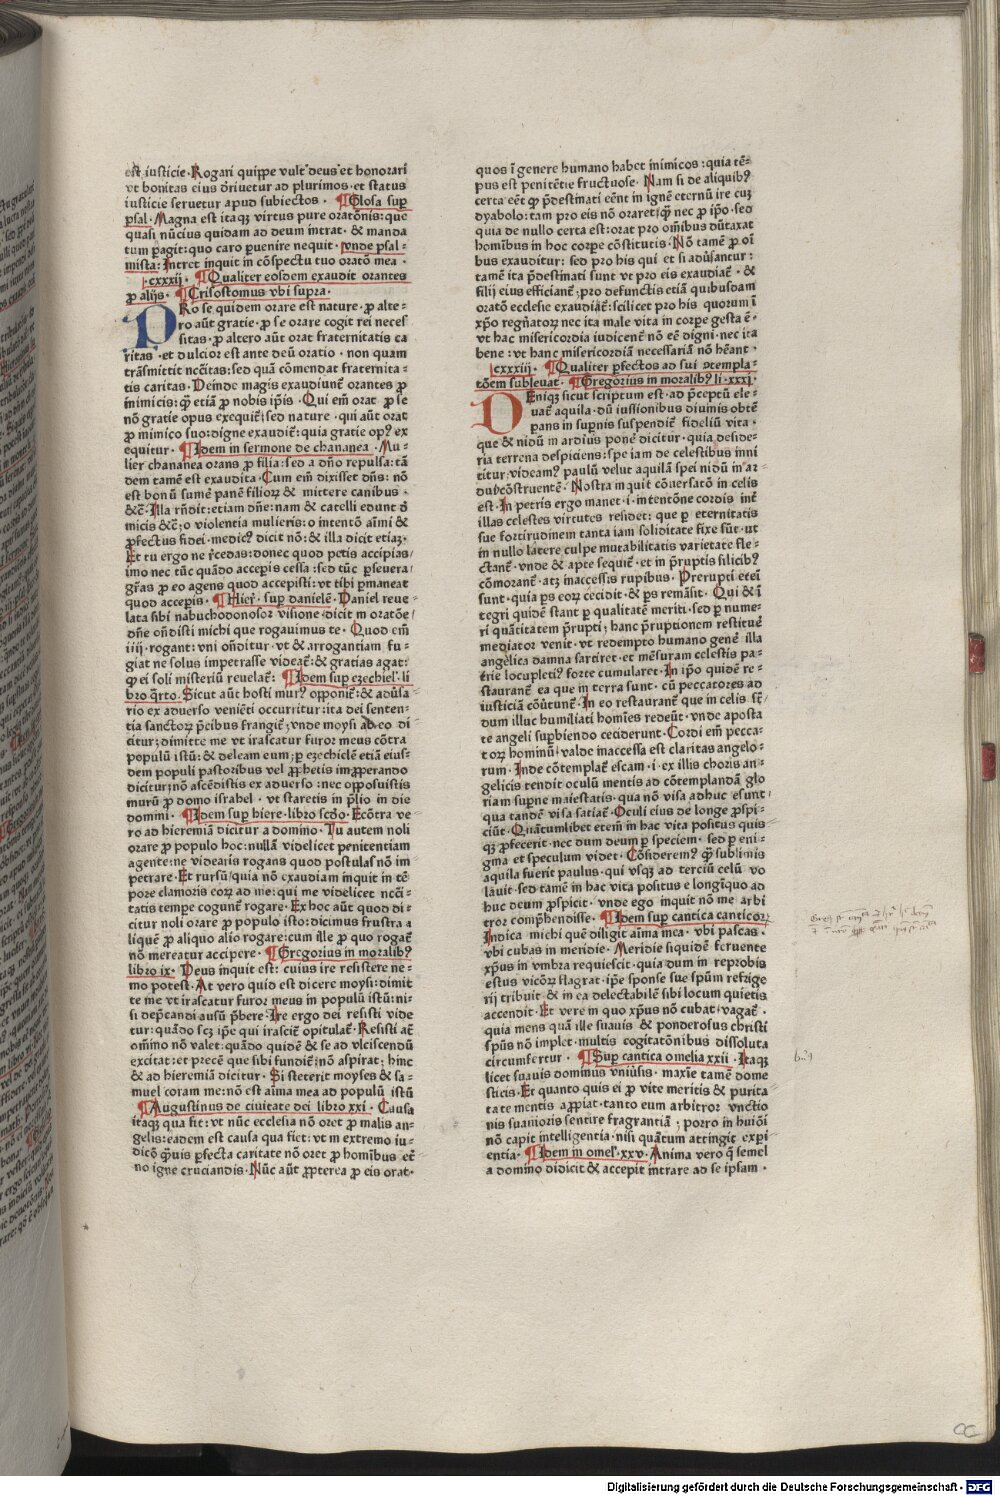 est iusticie · Rogari quippe vult deus et honorari
vt bonitas eius deriuetur ad plurimos · et status
iusticie seruetur apud subiectos · ¶ Glosa sup
psal · Magna est itaqꝫ virtus pure oratōnis: que
quasi nūcius quidam ad deum intrat · & manda
tum ꝑagit: quo caro ꝑuenire nequit · vnde psal-
mista: Intret inquit in cōspectu tuo oratō mea ·
cxxxij · ¶ Qualiter eosdem exaudit orantes
ꝓ alijs · ¶ Crisostomus vbi supra ·
PRo se quidem orare est nature · ꝓ alte-
ro aūt gratie · ꝓ se orare cogit rei neces
sitas · ꝓ altero aūt orat fraternitatis ca
ritas · et dulcior est ante deū oratio · non quam
trāsmittit necītas: sed quā cōmendat fraternita-
tis caritas · Deinde magis exaudiunt̄ orantes ꝓ
inimicis: ꝙ etiā ꝓ nobis ip̄is · Qui em̄ orat ꝓ se
nō gratie opus exequit̄: sed nature · qui aūt orat
ꝓ inimico suo: digne exaudit̄: quia gratie opꝰ ex
equitur · ¶ Idem in sermone de chananea · Mu-
lier chananea orans ꝓ filia: sed a dn̄o repulsa: tā
dem tamē est exaudita · Cum em̄ dixisset dn̄s: nō
est bonū sume panē filioꝝ & mittere canibus ·
&c̄ · Illa rn̄dit: etiam dn̄e: nam & catelli edunt d̄
micis &c̄: o violentia mulieris: o intentō aīmi &
ꝓfectus fidei · medicꝰ dicit nō: & illa dicit etiaꝫ ·
Et tu ergo ne r̄cedas: donec quod petis accipias/
imo nec tūc quādo accepis cessa: sed tūc ꝑseuera/
gr̄as ꝓ eo agens quod accepisti: vt tibi ꝑmaneat
quod accepis · ¶ Hier̄ · suꝑ danielē · Daniel reue-
lata sibi nabuchodonosor visione: dicit in oratōe/
dn̄e on̄disti michi que rogauimus te · Quod em̄
iiij · rogant: vni on̄ditur · vt & arrogantiam fu-
giat ne solus impetrasse videat̄: & gratias agat:
ꝙ ei soli misteriū reuelat̄: ¶ Idem suꝑ ezechiel · li
bro q̄rto · Sicut aūt hosti murꝰ opponit̄: & aduſa-
rio ex aduerso venieti occurritur: ita dei senten-
tia sanctoꝝ p̄cibus frangit̄: vnde moysi ab eo di
citur: dimitte me vt irascatur furor meus cōtra
populū istū: & deleam eum: ꝑ ezechiclē etiā eius-
dem populi pastoribus vel ꝓphetis imꝓperando
dicitur: nō ascēdistis ex aduerso: nec opposuistis
murū ꝓ domo israhel · vt staretis in p̄lio in die
domini · ¶ Idem suꝑ hiere · libro scd̄o · Ecōtra ve-
ro ad hieremiā dicitur a domino · Tu autem noli
orare ꝓ populo hoc: nullā videlicet penitentiam
agente: ne videaris rogans quod postulas nō im
petrare · Et rursū/ quia nō exaudiam inquit in tē
pore clamoris eoꝝ ad me: qui me videlicet necī-
tatis tempe cogunt̄ rogare · Ex hoc aūt quod di-
citur noli orare ꝓ populo isto: dicimus frustra a
lique ꝓ aliquo alio rogare: cum ille ꝓ quo rogat̄
nō mereatur accipere · ¶ Gregorius in moralibꝰ
libro ix · Deus inquit est: cuius ire resistere ne-
mo potest · At vero quid est dicere moysi: dimit
te me vt irascatur furor meus in populū istū: ni-
si dep̄candi ausū p̄bere · Ire ergo dei resisti vide
tur: quādo scꝫ ip̄e qui irascit̄ opitulat̄ · Resisti at̄
om̄ino nō valet: quādo quidē & se ad vlciscendū
excitat: et precē que sibi fundit̄: nō aspirat; hinc
& ad hieremiā dicitur · Si steterit moyses & sa-
muel coram me: nō est aīma mea ad populū istū
¶ Augustinus de ciuitate dei libro xxi · Causa
itaqꝫ qua fit: vt nūc ecclesia nō oret ꝓ malis an-
gelis: eadem est causa qua fiet: vt in extremo iu-
dicō q̄uis ꝑfecta caritate nō oret ꝓ hominibus et̄
no igne cruciandis · Nūc aūt ꝓpterea ꝓ eis orat ·
quos ī genere humano habet inimicos: quia tē-
pus est penitētie fructuose · Nam si de aliquibꝰ
certa eēt ꝙ p̄destinati eēnt in ignē eternū ire cuꝫ
dyabolo: tam pro eis nō oraret: ꝙ nec ꝓ ip̄o · sed
quia de nullo certa est: orat pro omībus dūtaxat
homībus in hoc corpe cōstitutis · Nō tamē ꝓ oī
bus exauditur: sed pro his qui et si aduſantur:
tamē ita p̄destinati sunt vt pro eis exaudiat̄ · &
filij eius efficiant̄; pro defunctis etiā quibusdam
oratō ecclesie exaudiat̄: scilicet pro his quorum ī
xp̄o regn̄atoꝝ nec ita male vita in corpe gesta ē ·
vt hac misericordia iudicent̄ nō eē digni · nec ita
bene: vt hanc misericordiā necessariā nō hēant ·
cxxxiij · ¶ Qualiter ꝑfectos ad sui ↄtempla-
tōem subleuat · ¶ Gregorius in moralibꝰ li · xxxj ·
DEniqꝫ sicut scriptum est · ad p̄ceptū ele-
uat̄ aquila · dū iussionibus diuinis obtē
perans in supnis suspendit̄ fideliū vita ·
que & nidū in ardius ponē dicitur · quia deside-
ria terrena despiciens: spe iam de celestibus inni
titur; videamꝰ paulū velut aquilā spei nidū in ar-
du cōstruentē · Nostra inquit cōuersatō in celis
est · In petris ergo manet · i · intentōne cordis int̄
illas celestes virtutes residet: que ꝑ eternitatis
sue fortitudinem tanta iam soliditate fixe sūt · ut
in nullo latere culpe mutabilitatis varietate fle-
ctant̄ · vnde & apte sequit̄ · et in p̄ruptis silicibꝰ
cōmorant̄ · atꝫ inaccessis rupibus · Prerupti eteī
sunt · quia ꝑs eoꝝ cecidit · & ꝑs remāsit · Qui & ī
tegri quidē stant ꝑ qualitatē meriti · sed ꝑ nume-
ri quātitatem p̄rupti; hanc p̄ruptionem restituē
mediator venit · vt redempto humano genē illa
angelica damna sarciret · et mēsuram celestis pa-
trie locupletiꝰ forte cumularet · In ip̄o quidē re-
staurant̄ ea que in terra sunt · cū peccatores ad
iusticiā cōūtunt̄ · In eo restaurant̄ que in celis st̄/
dum illuc humiliati homīes redeūt · vnde aposta
te angeli suꝑbiendo ceciderunt · Cordi em̄ pecca-
toꝝ hominū: valde inaccessa est claritas angelo-
rum · Inde cōtemplat̄ escam · i · ex illis choris an-
gelicis tendit oculū mentis ad cōtemplandā glo
riam suꝑne maiestatis · qua nō visa adhuc esunt/
qua tandē visa satiat̄ · Oculi eius de longe ꝓspi-
ciūt · Quātumlibet etem̄ in hac vita positus quis
qꝫ ꝓfecerit · nec dum deum ꝑ speciem · sed ꝑ eni-
gma et speculum videt · Cōsideremꝰ ꝙ sublimis
aquila fuerit paulus · qui vsqꝫ ad terciū celū vo
lauit · sed tamē in hac vita positus e longīquo ad
huc deum ꝓspicit · vnde ego inquit nō me arbi
tror comp̄hendisse · ¶ Idem suꝑ cantica canticoꝝ
Indica michi quē diligit aīma mea · vbi pascas ·
vbi cubas in meridie · Meridie siquidē feruente
xp̄us in vmbra requiescit · quia dum in reprobis
estus vicoꝝ flagrat · ip̄e sponse sue sp̄um refrige
rij tribuit & in ea delectabilē sibi locum quietis
accendit · Et vere in quo xp̄us nō cubat: vagat̄ ·
quia mens quā ille suauis & ponderosus christi
sp̄us nō implet · multis cogitatōnibus dissoluta
circumfertur · ¶ Suꝑ cantica omelia xxii · Itaqꝫ
licet suauis dominus vniūsis · maxīe tamē dome
sticis · Et quanto quis ei ꝓ vite meritis & purita
tate mentis aꝓpiat · tanto eum arbitror vnctio
nis suauioris sentire fragrantiā; porro in huiōi
nō capit intelligentia · nisi quātum attingit exꝑi
entia · ¶ Idem in omel · xxv · Anima vero q̄ semel
a domino didicit & accepit intrare ad se ipsam ·
Digitalisierung gefördert durch die Deutsche Forschungsgemeinschaft - DFG